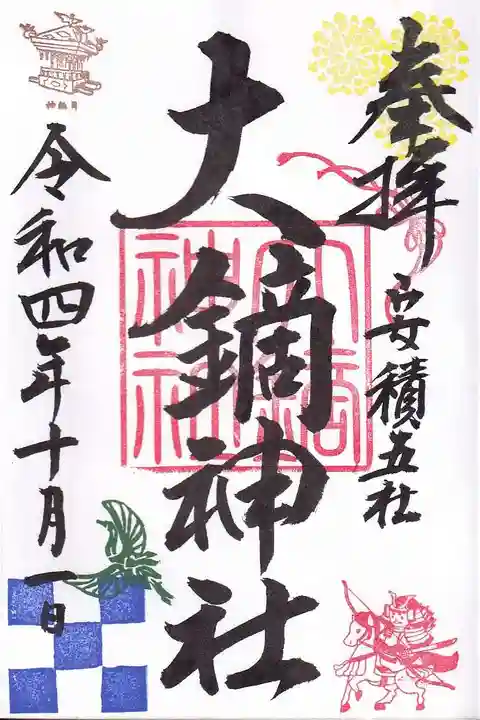 奉拝
安積五社
大鏑神社
令和四年十月一日